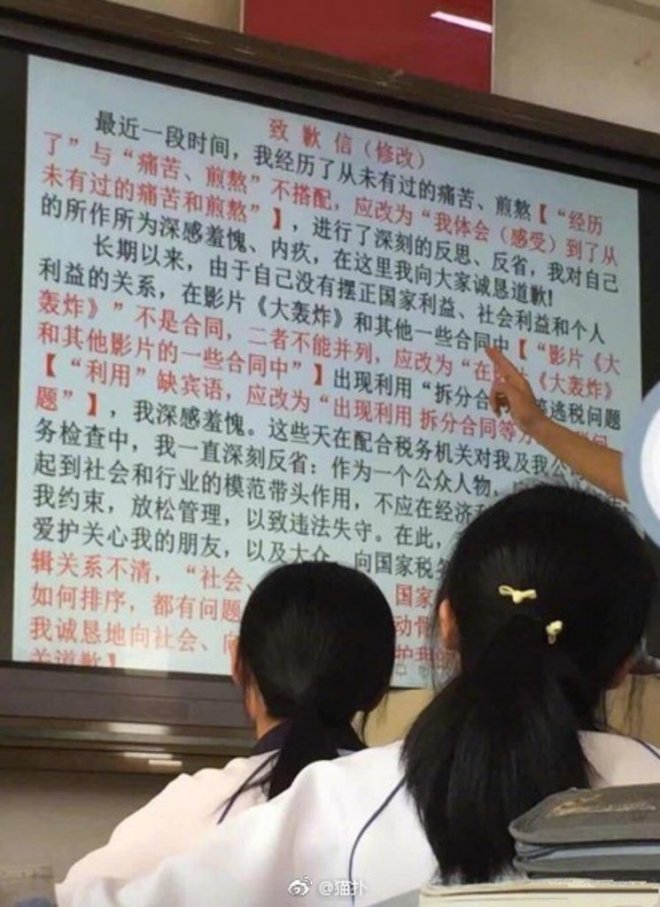 致 歉 信（修改）
最近一段时间，我经历了从未有过的痛苦、煎熬【“经历
了”与“痛苦、煎熬”不搭配，应改为“我体会（感受）到了从
未有过的痛苦和煎熬”】，进行了深刻的反思、反省，我对自己
的所作所为深感羞愧、内疚，在这里我向大家诚恳道歉!
长期以来，由于自己没有摆正国家利益、社会利益和个人
利益的关系，在影片《大轰炸》和其他一些合同中【“影片《大
轰炸》”不是合同，二者不能并列，应改为“在 《大轰炸》
和其他影片的一些合同中”】出现利用“拆分合 逃税问题
【“利用”缺宾语，应改为“出现利用 拆分合同等
题”】，我深感羞愧。这些天在配合税务机关对我及我公
务检查中，我一直深刻反省：作为一个公众人物，
起到社会和行业的模范带头作用，不应在经济利
我约束，放松管理，以致违法失守。在此，
爱护关心我的朋友，以及大众，向国家税务
辑关系不清，“社会、 国家
如何排序，都有问题 动
我诚恳地向社会、向 护我的
关道歉】
@猫扑